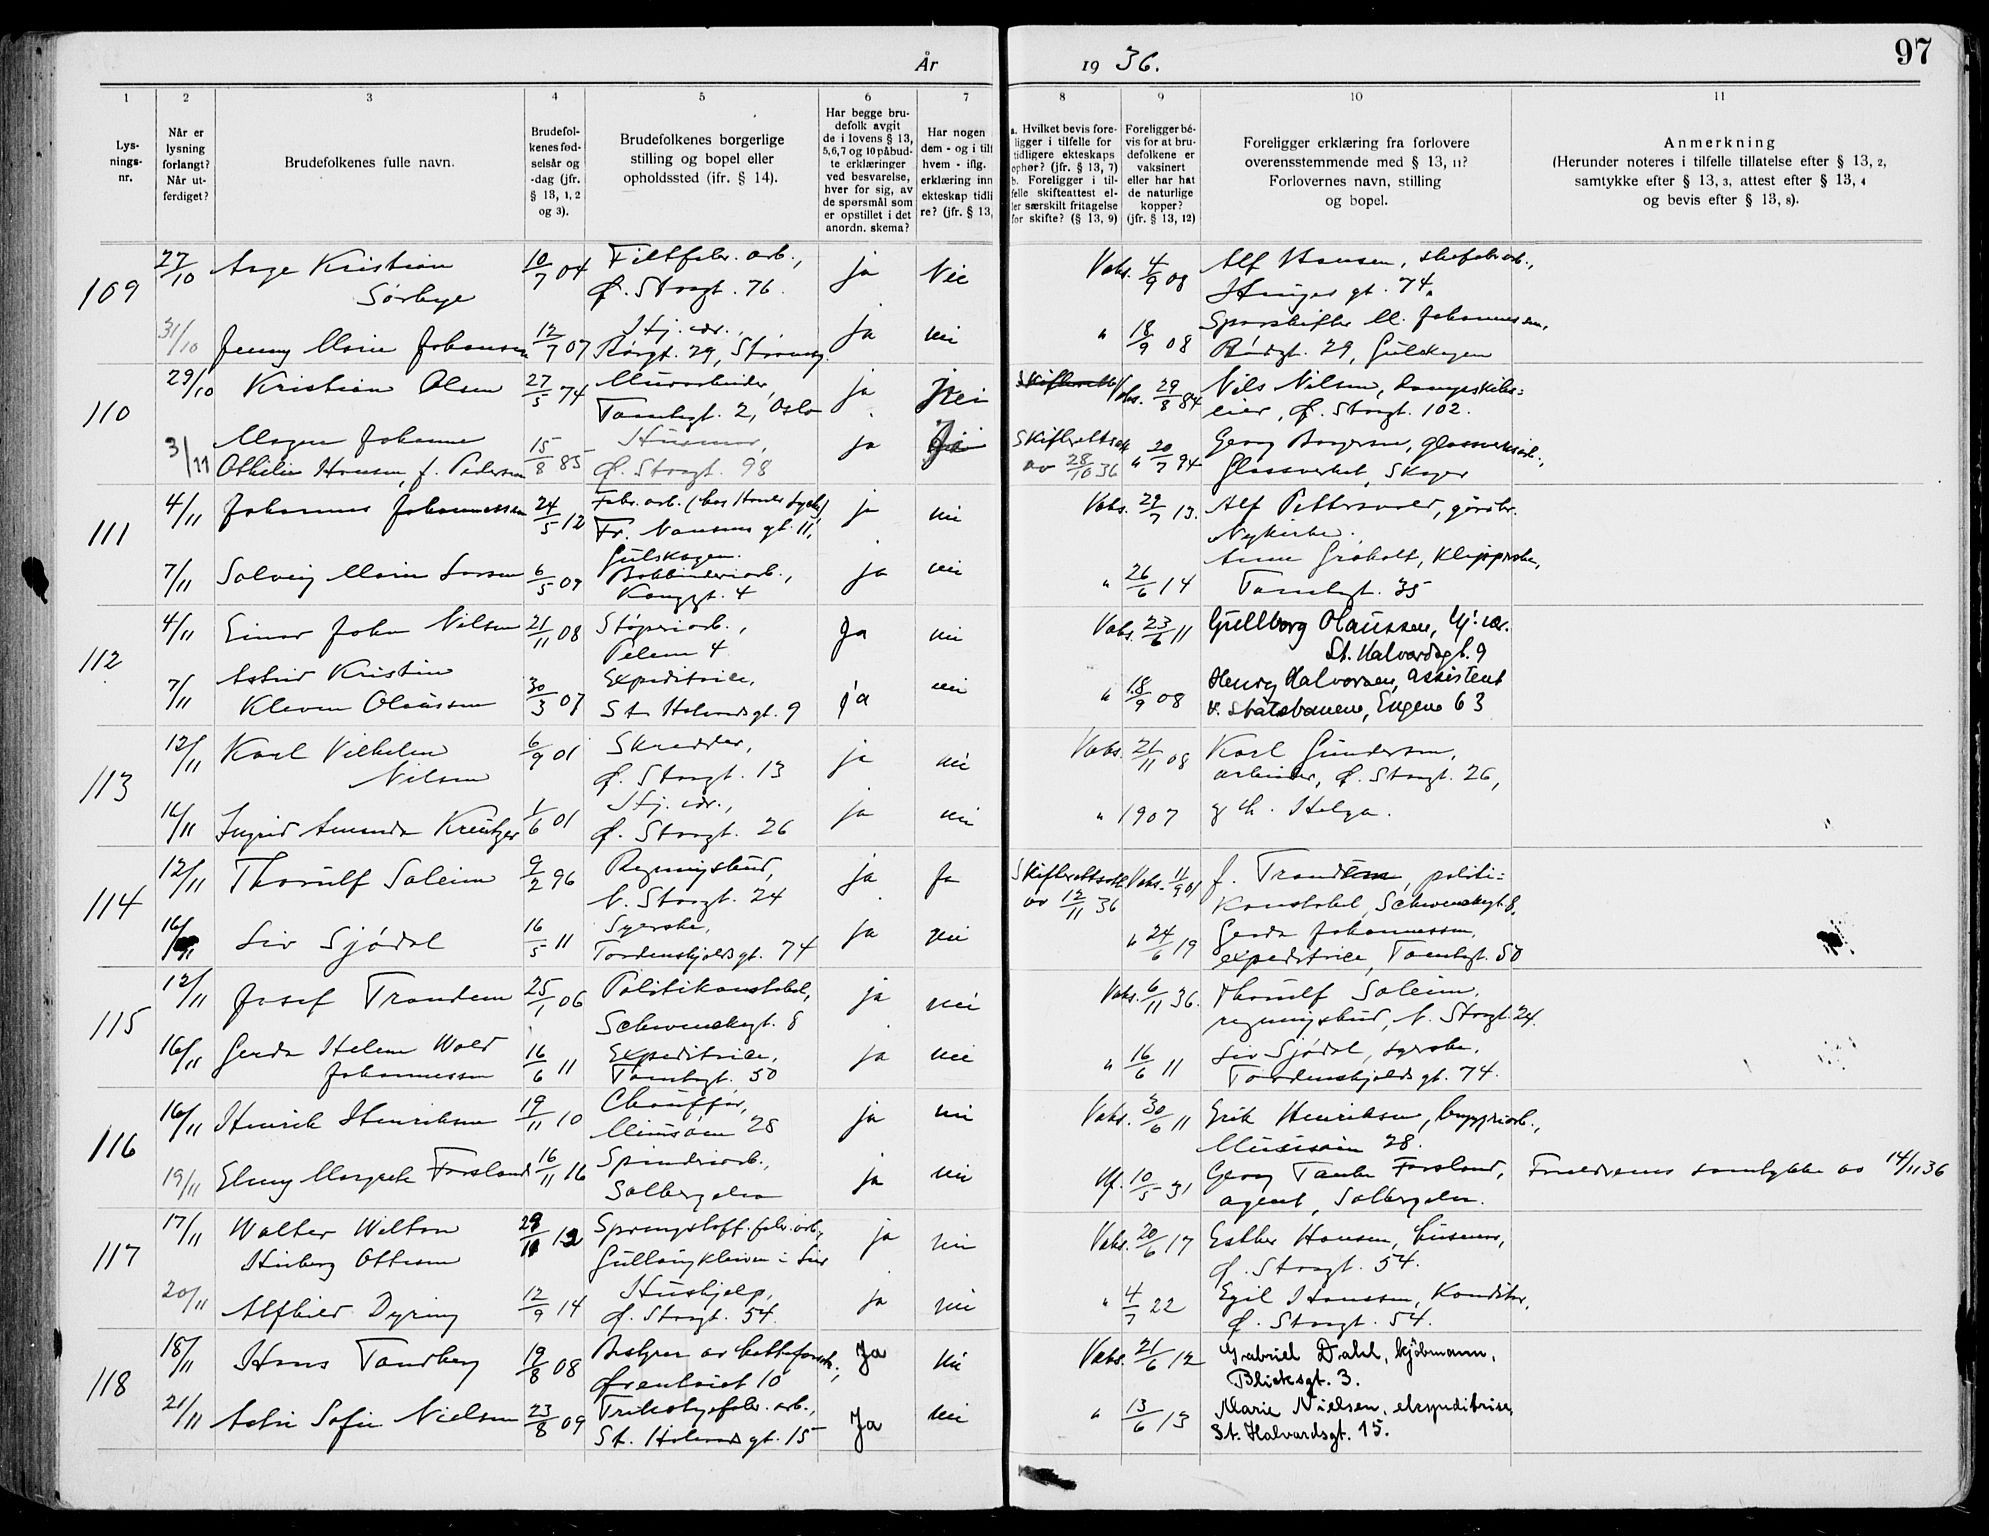 97
År 1936.
1 2 3 4 5 6 7 8 9 10 11
Lys-
nings-
nr.
Når er
lysning
forlangt?
Når ut-
ferdiget?
Brudefolkenes fulle navn.
Brudefol-
kenes fød-
selsår og
-dag (jfr.
§ 13, 1, 2
og 3).
Brudefolkenes borgerlige
stilling og bopel eller
opholdssted (ifr. § 14).
Har begge bru-
defolk avgit
de i lovens § 13,
5,6,7 og 10 påbud-
te erklæringer
ved besvarelse,
hver for sig, av
de spørsmål som
er opstillet i det
anordn. skema?
Har nogen
dem - og i tilf
hvem - iflg.
erklæring inn
ekteskap tidli
re? (jfr. § 13,
a. Hvilket bevis fore-
ligger i tilfelle for
tidligere ekteskaps
ophør? (jfr. § 13, 7)
b. Foreligger i til-
felle skifteattest el-
ler særskilt fritagelse
for skifte? (§ 13, 9)
Foreligger be-
vis for at bru-
defolkene er
vaksinert
eller har hat
de naturlige
kopper?
(jfr. § 13, 12)
Foreligger erklæring fra forlovere
overensstemmende med § 13, 11?
Forlovernes navn, stilling
og bopel.
Anmerkning
(Herunder noteres i tilfelle tillatelse efter § 13, 2,
samtykke efter § 13, 3, attest efter § 13, 4
og bevis efter § 13, 8).
109 27/10 Aage Kristian Sørbye 10/7 04 Filtfabr. arb., Ø. Storgt. 76 ja Nei Vaks. 4/9 08 Alf Hansen, skofabr.arb., Hauges gt. 74
31/10 Jenny Marie Johansen 12/7 07 Hj. vær., 29, ja nei " 18/9 08 Sporskifter M. Johannessen, 29, Gulskogen
110 29/10 Kristian Olsen 27/5 74 Murarbeider, Tomtegt. 2, Oslo ja nei Vaks. 29/8 84 Nils Nilsen, Ø. Storgt. 102.
3/11 Johanne Othilie Hansen, f. Pedersen 15/8 85 Husmor, Ø. Storgt. 98 ja Ja Skifterettsatt. av 28/10 36 " 20/7 94 Georg Borgersen, glassverksarb., Glassverket, Skoger
111 4/11 Johannes Johannessen 24/5 12 Fabr. arb. Fr. Nansens gt. 11, Gulskogen. ja nei Vaks. 29/7 13. Alf Pettersvold, gårdbr. Nykirke.
7/11 Solveig Marie Larsen 6/5 09 Bokbinderiarb., Konggt. 4 ja nei " 26/6 14 Anna Tomtegt. 35
112 4/11 Einar John Nilsen 21/11 08 Støperiarb., Pelem 4 Ja nei Vaks. 23/6 11 Gullborg Olaussen, hj. vær. St. Halvardsgt. 9
7/11 Astrid Kristine Kleven Olaussen 30/3 07 Expeditrice, St. Halvardsgt. 9 ja nei " 18/9 08 Henry Halvorsen, assistent v. Statsbanene, Engene 63
113 12/11 Karl Vilhelm Nilsen 6/9 01 Skredder, Ø. Storgt. 13 ja nei Vaks. 21/11 08 Karl Gundersen, arbeider, Ø. Storgt. 26,
16/11 Ingrid Amanda Kreutzer 1/6 01 Hj. vær., Ø. Storgt. 26 ja nei " 1907 g h. Helga.
114 12/11 Thorulf Soleim 9/2 96 Regningsbud, N. Storgt. 24 ja Ja Skifterettsatt. av 12/11 36 Vaks. 11/9 01 J. Trondem, politi= konstabel, Schwencksgt. 8.
16/11 Liv Sjødal 16/5 11 Syerske, Tordenskjolds gt. 74 ja nei " 24/6 19 Gerda Johannessen, expeditrice, Tomtegt. 50
115 12/11 Josef Trondem 25/1 06 Politikonstabel, Schwencksgt. 8 ja nei Vaks. 6/11 36. Thorulf Soleim, regningsbud, N. Storgt. 24.
16/11 Gerda Helene Wold Johannessen 16/6 11 Expeditrice, Tomtegt. 50 ja nei " 16/6 11 Liv Sjødal, syerske. Tordenskjolds gt. 74.
116 16/11 Henrik Henriksen 19/11 10 Chauffør, 28 ja nei Vaks. 30/6 11 Erik Henriksen, bryggeriarb., 28.
19/11 Elnny Margrethe Forsland 16/11 16 Spinderiarb., Solbergelva ja nei Uf. 10/5 31 Georg Forsland, agent, Solbergelva. Foreldrenes samtykke av 14/11 36
117 17/11 Walter Wilton Hinberg Ottesen 29/11 12 Sprengstoff. fabr. arb., Gullaugkleiven i Lier ja nei Vaks. 20/6 17 Esther Hansen, husmor, Ø. Storgt. 54.
20/11 Alfhild Dyring 12/9 14 Hushjelp, Ø. Storgt. 54. ja nei " 4/7 22 Egil Hansen, Konditor, Ø. Storgt. 54.
118 18/11 Hans Tandberg 19/8 08 Bestyrer av hatteforretn., Øvenløiet 10 Ja nei Vaks. 21/6 12 Gabriel Dahl, kjøbmann, Blicksgt. 3.
21/11 Astri Sofie Nielsen 23/8 09 Trikotagefabr. arb., St. Halvards gt. 15 Ja nei " 13/6 13 Marie Nielsen, ekspeditrise, St. Halvardsgt. 15.